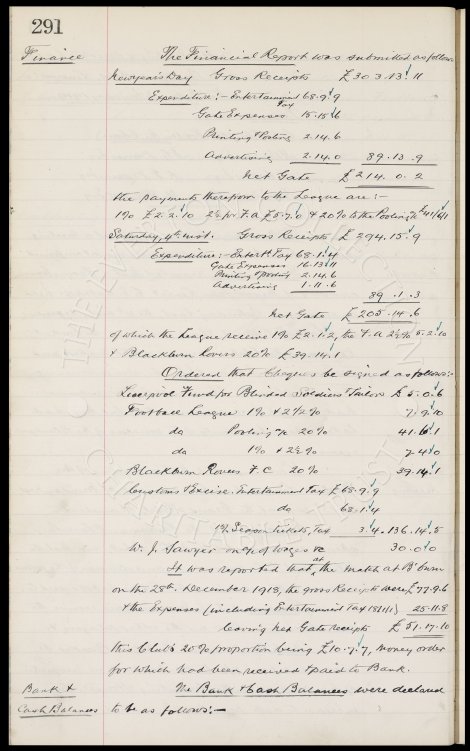 291
Finance The Financial Report was submitted as follows
New years Day Gross Receipts £303.13.11
Expenditure:- Entertainment Tax 68.9.9
Gate Expenses 15.15.6
Printing & Posting 2.14.6
Advertising 2.14.0 89.13.9
Net Gate £214.0.2
the payments therefrom to the League are:-
1% £2.2.10 2½% for F.A. £5.7.0 & 20% to the Pooling a/c £41/6/1
Saturday, 4th inst. Gross Receipts £294.15.9
Expenditure:- Entert. Tax 68.1.4
Gate Expenses 16.13.11
Printing & Posting 2.14.6
Advertising 1.11.6
89.1.3
Net Gate £205.14.6
of which the League receive 1% £2.1.2, the F.A 2½% 5.2.10
& Blackburn Rovers 20% £39.14.1
Ordered that Cheques be signed as follows:-
Liverpool Fund for Blinded Soldiers & Sailors £5.0.6
Football League 1% & 2½% 7.9.10
do Pooling a/c 20% 41.6.1
do 1% & 2½% 7.4.0
Blackburn Rovers F.C. 20% 39.14.1
Customs & Excise. Entertainment Tax £68.9.9
do 68.1.4
1% Season Tickets, Tax 3.4. 136.14.5
W. J. Sawyer on a/c of Wages &c 30.0.0
It was reported that at the match at B'burn
on the 28th December 1918, the gross Receipts were £77.9.6
& the Expenses (including Entertainment Tax 18/1/1) 25.11.8
leaving net Gate receipts £51.17.10
this Club's 20% proportion being £10.7.7, money order
for which had been received & paid to Bank.
Bank & The Bank & Cash Balances were declared
Cash Balances to be as follows:-
THE EVERTON COLLECTION
CHARITABLE TRUST